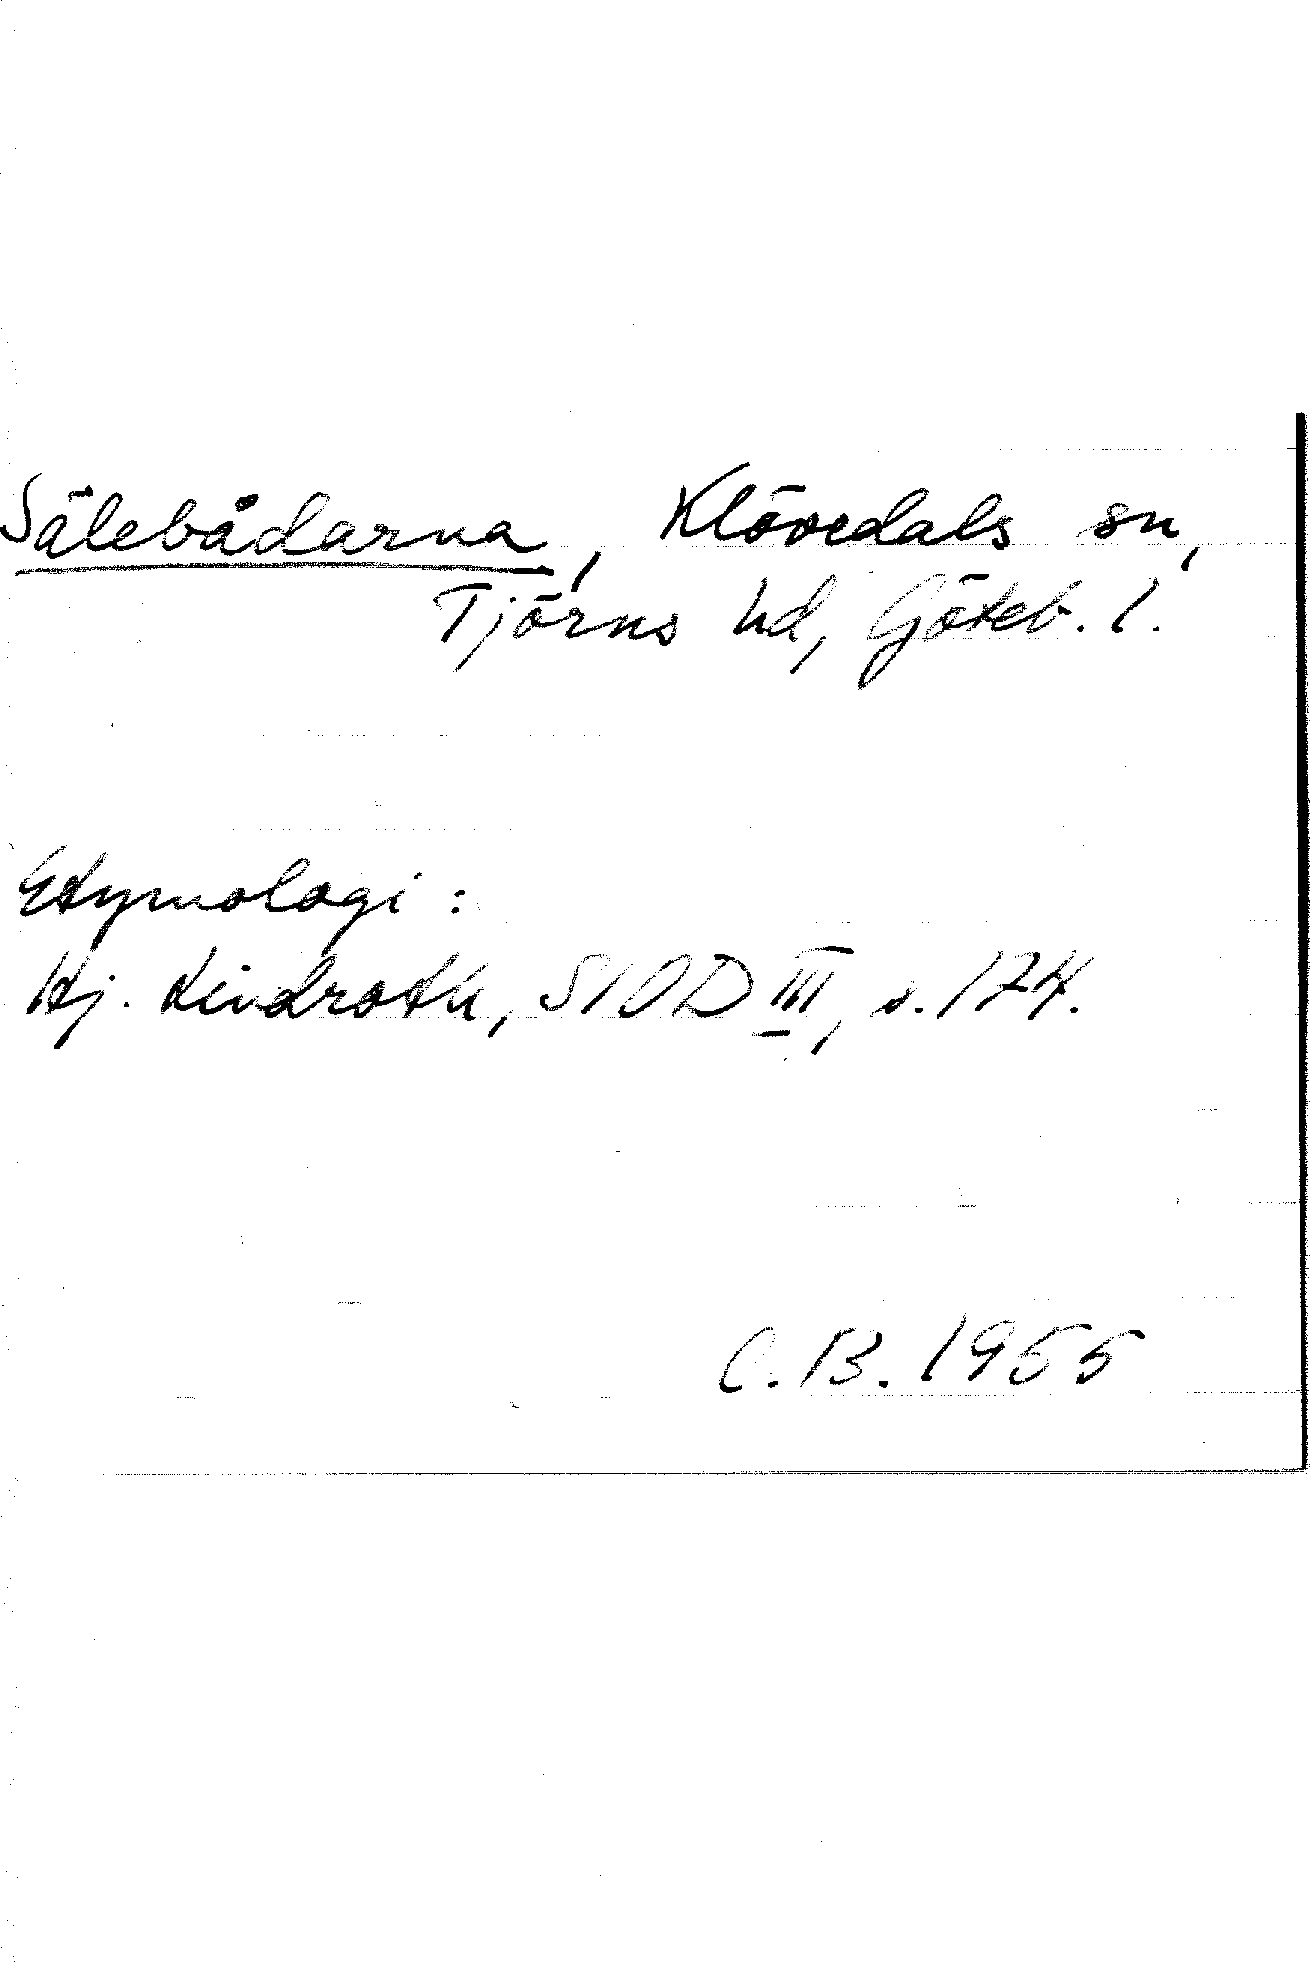 Sälebådarna, Klövedals sn,
Tjörns hd, Göteb. l.
Etymologi:
Hj. Lindroth, SIOD III, s. 174.
C. B. 1955